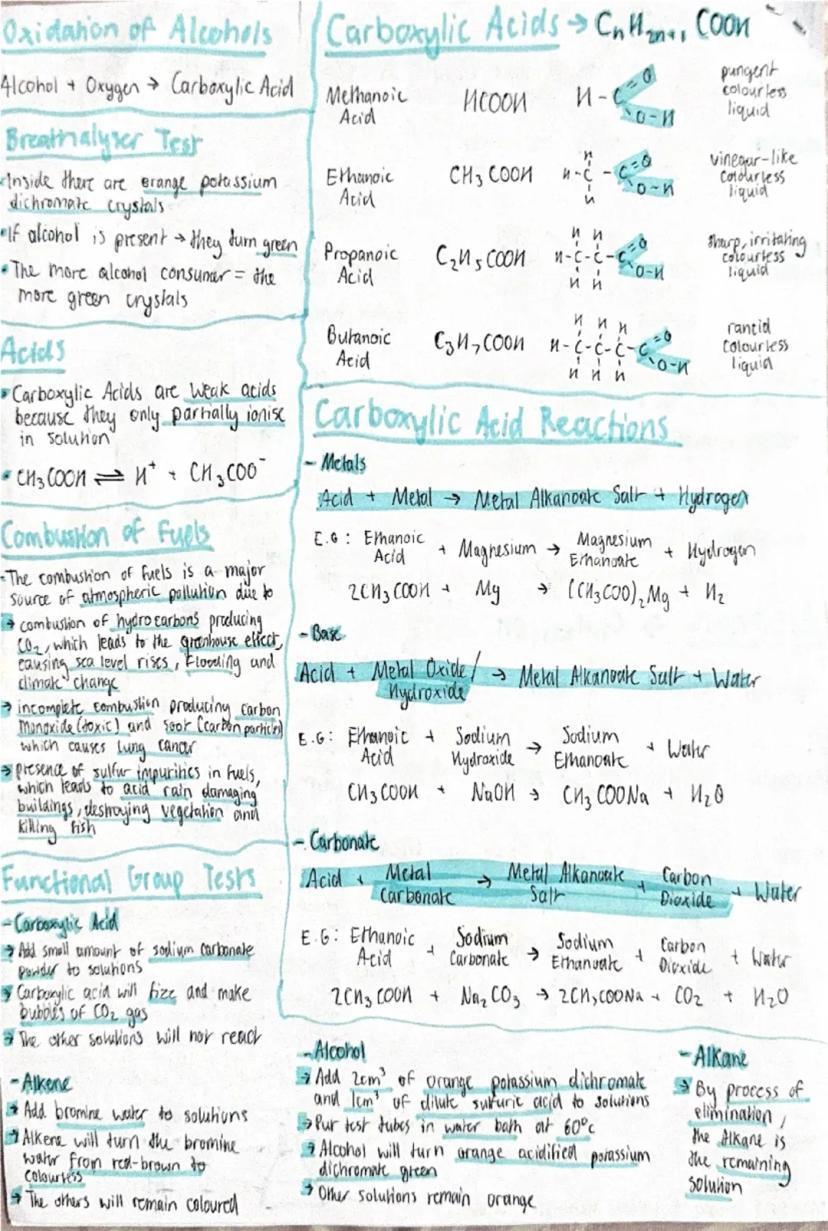 Oxidation of Alcohols
Alcohol + Oxygen → Carboxylic Acid
Breathalyser Test
• Inside there are orange potassium
dichromate crystals
• If alcohol is present → they turn green
• The more alcohol consumer = the
more green crystals
Acids
• Carboxylic Acids are weak acids
because they only partially ionise
in solution
• CH₃COOH ⇌ H⁺ + CH₃COO⁻
Combustion of Fuels
- The combustion of fuels is a major
source of atmospheric pollution due to
→ combustion of hydrocarbons producing
CO₂, which leads to the greenhouse effect,
causing sea level rises, flooding and
climate change
→ incomplete combustion producing carbon
monoxide (toxic) and soot (carbon particles)
which causes lung cancer
→ presence of sulfur impurities in fuels,
which leads to acid rain damaging
buildings, destroying vegetation and
killing fish
Functional Group Tests
- Carboxylic Acid
→ Add small amount of sodium carbonate
powder to solutions
→ Carboxylic acid will fizz and make
bubbles of CO₂ gas
→ The other solutions will not react
- Alkene
→ Add bromine water to solutions
→ Alkene will turn the bromine
water from red-brown to
colourless
→ The others will remain coloured
Carboxylic Acids → CnH2n+1 COOH
Methanoic
Acid
HCOOH
H - C = O
O - H
pungent
colourless
liquid
Ethanoic
Acid
CH₃COOH
H
H - C - C = O
O - H
H
vinegar-like
colourless
liquid
Propanoic
Acid
C₂H₅COOH
H H
H - C - C - C = O
O - H
H H
sharp, irritating
colourless
liquid
Butanoic
Acid
C₃H₇COOH
H H H
H - C - C - C - C = O
O - H
H H H
rancid
colourless
liquid
Carboxylic Acid Reactions
- Metals
Acid + Metal → Metal Alkanoate Salt + Hydrogen
E.G: Ethanoic Acid + Magnesium → Magnesium Ethanoate + Hydrogen
2CH₃COOH + Mg → (CH₃COO)₂Mg + H₂
- Base
Acid + Metal Oxide/ Hydroxide → Metal Alkanoate Salt + Water
E.G: Ethanoic Acid + Sodium Hydroxide → Sodium Ethanoate + Water
CH₃COOH + NaOH → CH₃COONa + H₂O
- Carbonate
Acid + Metal Carbonate → Metal Alkanoate Salt + Carbon Dioxide + Water
E.G: Ethanoic Acid + Sodium Carbonate → Sodium Ethanoate + Carbon Dioxide + Water
2CH₃COOH + Na₂CO₃ → 2CH₃COONa + CO₂ + H₂O
- Alcohol
→ Add 2cm³ of orange potassium dichromate
and 1cm³ of dilute sulfuric acid to solutions
→ Put test tubes in water bath at 60°c
→ Alcohol will turn orange acidified potassium
dichromate green
→ Other solutions remain orange
- Alkane
→ By process of
elimination,
the alkane is
the remaining
solution